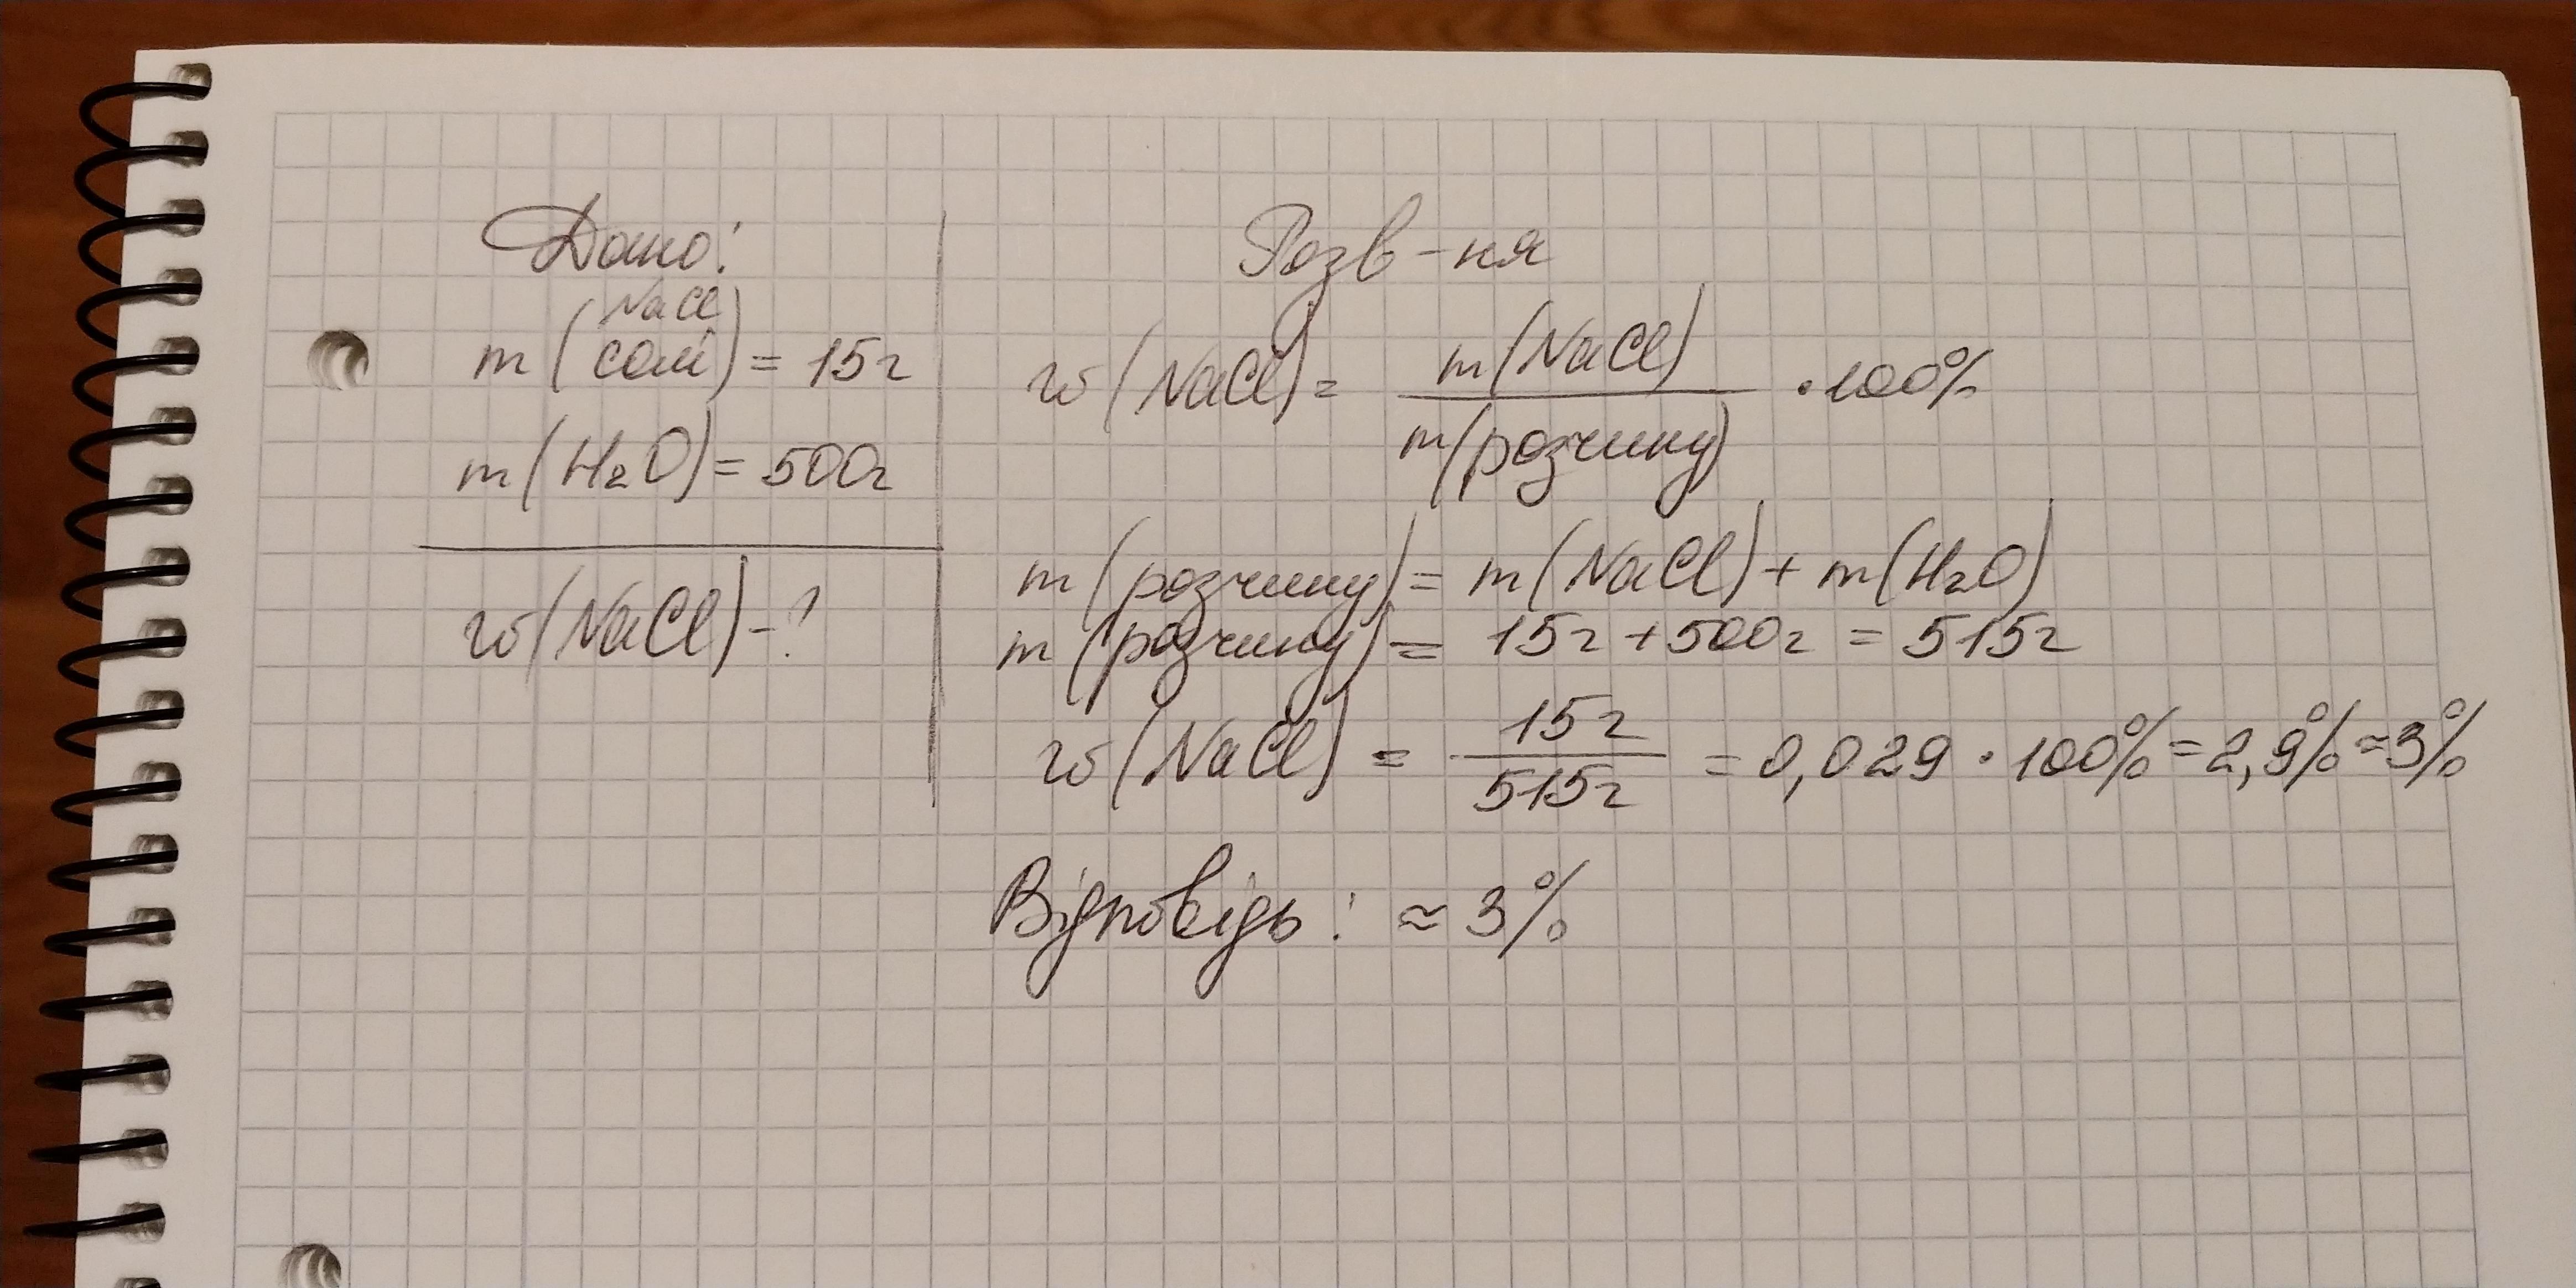 Дано:
NaCl
m(солі) = 15г
m(H₂O) = 500г
w(NaCl) - ?
Розв-ня
w(NaCl) = m(NaCl) / m(розчину) · 100%
m(розчину) = m(NaCl) + m(H₂O)
m(розчину) = 15г + 500г = 515г
w(NaCl) = 15г / 515г = 0,029 · 100% = 2,9% ≈ 3%
Відповідь: ≈ 3%